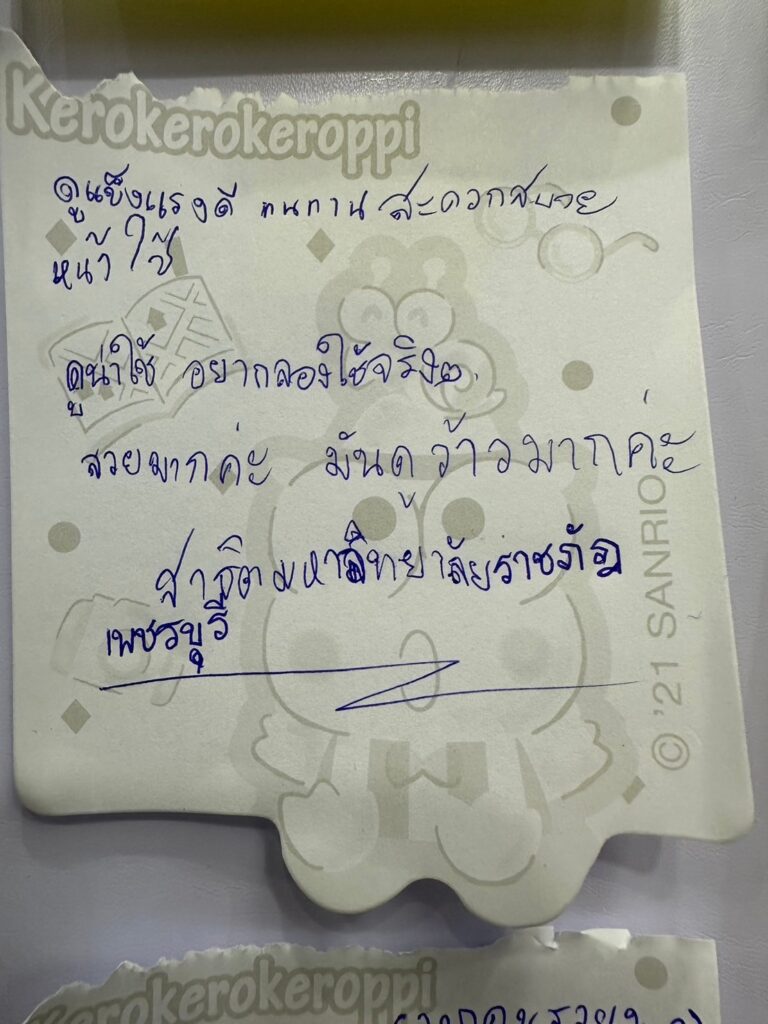 Kerokerokeroppi
ดูแข็งแรงดี ทนทาน สะดวกสบาย
หน้าใช้
ดูน่าใช้ อยากลองใช้จริงๆ
สวยมากค่ะ มันดูว้าวมากค่ะ
สาธิตมหาวิทยาลัยราชภัฏ
เพชรบุรี
© '21 SANRIO
Kerokerokeroppi